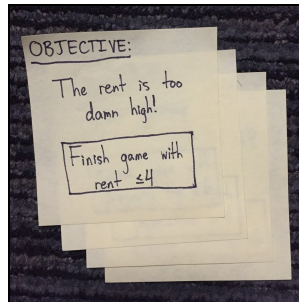 OBJECTIVE:
The rent is too
damn high!
Finish game with
rent ≤4